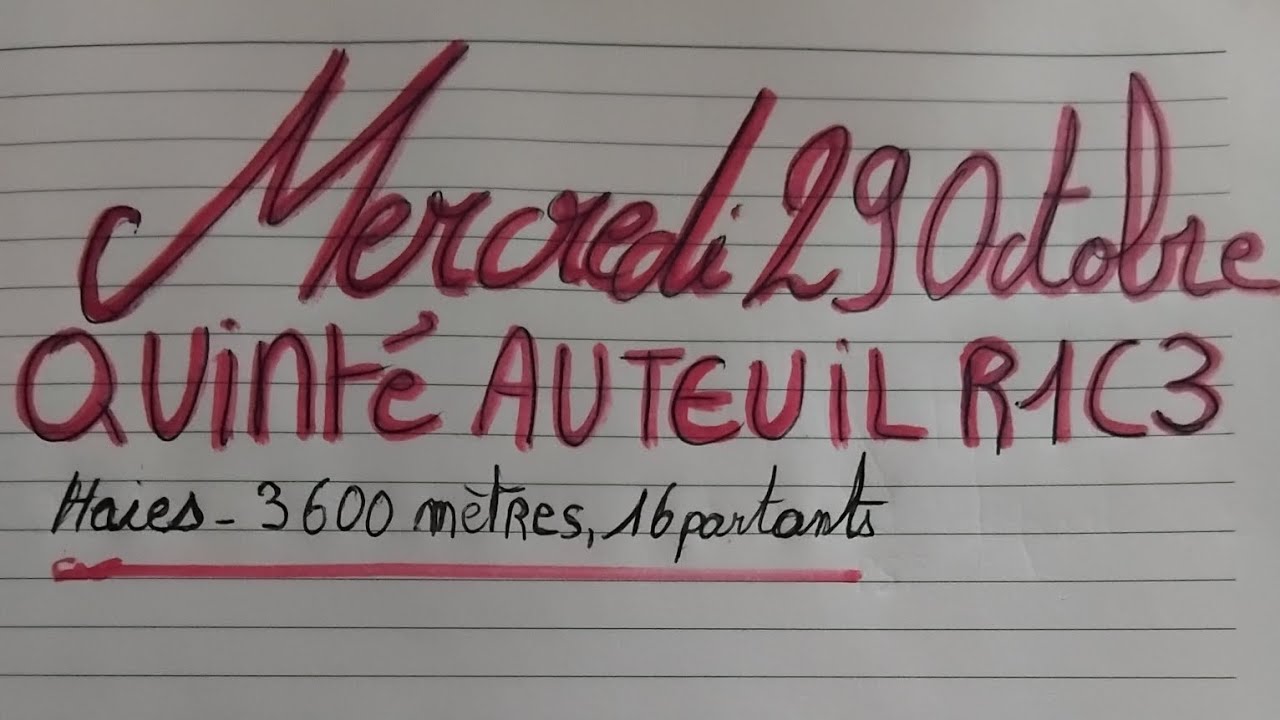 Mercredi 29 Octobre
QUINTÉ AUTEUIL R1C3
Haies - 3600 mètres, 16 partants